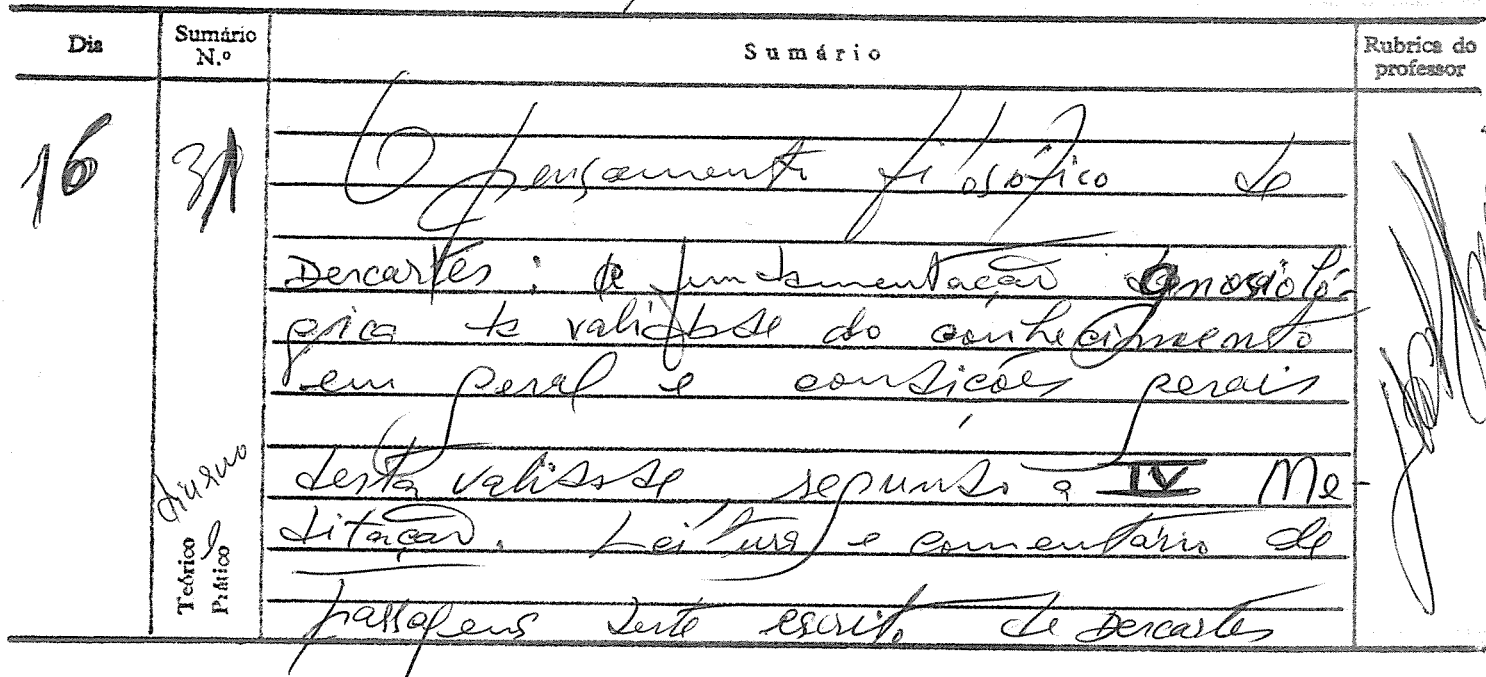 Dia Sumário N.º Sumário Rubrica do professor
16 31 O pensamento filosófico de
Descartes: a fundamentação gnosioló-
gica da validade do conhecimento
em geral e condições gerais
desta validade, segundo a IV Me-
ditação. Leitura e comentário de
passagens deste escrito de Descartes
diurno
Teórico
Prático